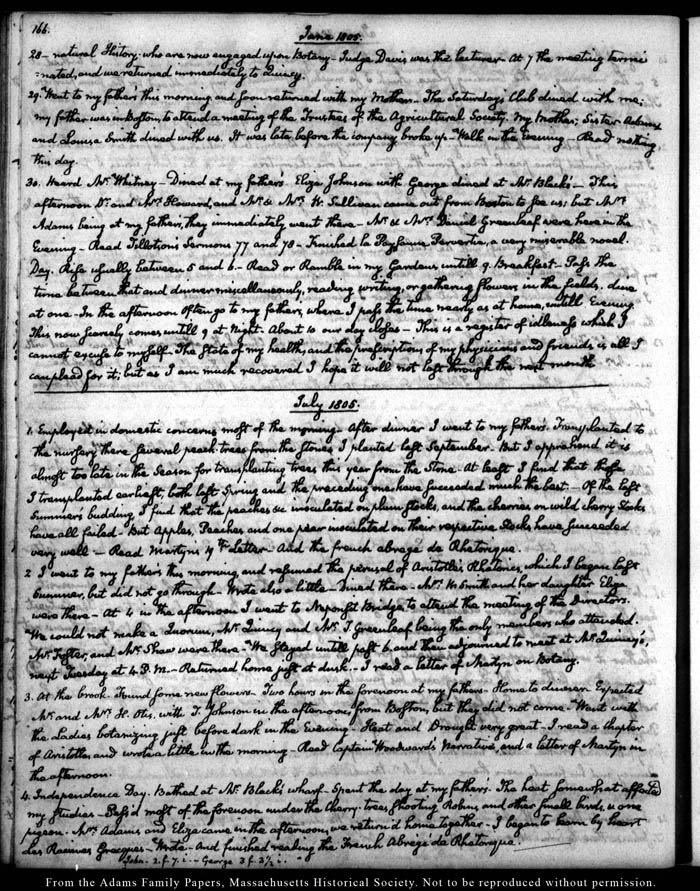 166.
June 1805.
28 - natural History who are now engaged upon Botany - Judge Davis was the lecturer - At 7 the meeting termi
nated, and we returned immediately to Quincy.
29. Went to my father's this morning and soon returned with my Mother - The Saturday's Club dined with me;
my father was in Boston, to attend a meeting of the Trustees of the Agricultural Society. My Mother, Sister Adams
and Louisa Smith dined with us. It was late before the company broke up - Walk in the Evening - Read nothing
this day.
30. Heard Mr Whitney - Dined at my father's - Eliza Johnson with George dined at Mr Black's - This
afternoon Dr and Mrs Howard, and Mr & Mrs W. Sullivan came out from Boston to see us; but Mrs
Adams being at my father's, they immediately went there - Mr & Mrs Daniel Greenleaf were here in the
Evening - Read Tillotson's Sermons 77 and 78 - Finished le Paysanne Pervertie, a very miserable novel.
Day. Rise usually between 5 and 6 - Read or Ramble in my Gardens, untill 9. Breakfast - Pass the
time between that and dinner miscellaneously, reading, writing, or gathering flowers in the fields. dine
at one - In the afternoon often go to my father's, where I pass the time nearly as at home, untill Evening.
This now scarcely comes untill 9 at Night. About 10 our day closes - This is a register of idleness which I
cannot excuse to myself - The State of my health, and the prescriptions of my physicians and friends is all I
can plead for it; but as I am much recovered I hope it will not last through the next month
July 1805.
1. Employed in domestic concerns most of the morning - After dinner I went to my father's. Transplanted to
the nursery there several peach trees from the stones I planted last September. But I apprehend it is
almost too late in the Season for transplanting trees this year from the Stone. At least I find that those
I transplanted earliest, both last Spring and the preceding one have succeeded much the best - Of the last
Summer's budding, I find that the peaches &c inoculated on plum stocks, and the cherries on wild cherry Stocks
have all failed - But Apples, Peaches and one pear inoculated on their respective Stocks have succeeded
very well - Read Martyn's 4th Letter - And the french abregé de Rhetorique.
2 I went to my father's this morning, and resumed the perusal of Aristotle's Rhetoric, which I began last
Summer, but did not go through - Wrote also a little - Dined there - Mrs W. Smith and her daughter Eliza
were there - At 4 in the afternoon I went to Neponset Bridge to attend the meeting of the Directors.
We could not make a Quorum, Mr Quincy and Mr T Greenleaf being the only members who attended.
Mr Foster, and Mr Shaw were there - We stayed untill past 6, and then adjourned to meet at Mr Quincy's,
next Tuesday at 4 P.M. - Returned home just at dusk - I read a letter of Martyn on Botany.
3. At the brook. Found some new flowers - Two hours in the forenoon at my father's - Home to dinner. Expected
Mr and Mrs H. Otis, with T. Johnson in the afternoon, from Boston, but they did not come - Went with
the Ladies botanizing just before dark in the Evening - Heat and Drought very great - I read a chapter
of Aristotle, and wrote a little in the morning - Read Captain Woodward's Narrative, and a letter of Martyn in
the afternoon.
4. Independence Day. Bathed at Mr Black's wharf - Spent the day at my father's. The heat somewhat affected
my studies - Pass'd most of the forenoon under the Cherry-trees shooting Robins, and other small birds, & one
pigeon. Mrs Adams and Eliza came in the afternoon, we return'd home together - I began to learn by heart
Les Racines Grecques - Wrote - And finished reading the French Abregé de Rhetorique.
John. 2. f. 7. i. - George 3 f. 3½ i.
From the Adams Family Papers, Massachusetts Historical Society. Not to be reproduced without permission.